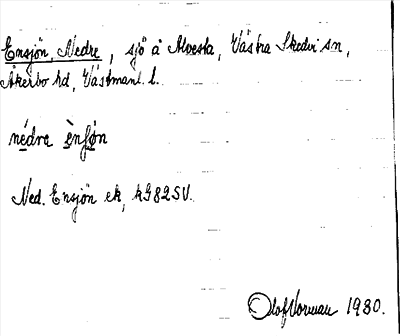 Ensjön, Nedre, sjö å Alvesta, Västra Skedvi sn,
Åkerbo hd, Västmanl. l.
nédra ènʃøn
Ned. Ensjön ek, kG82SV.
Olof Vorman 1930.